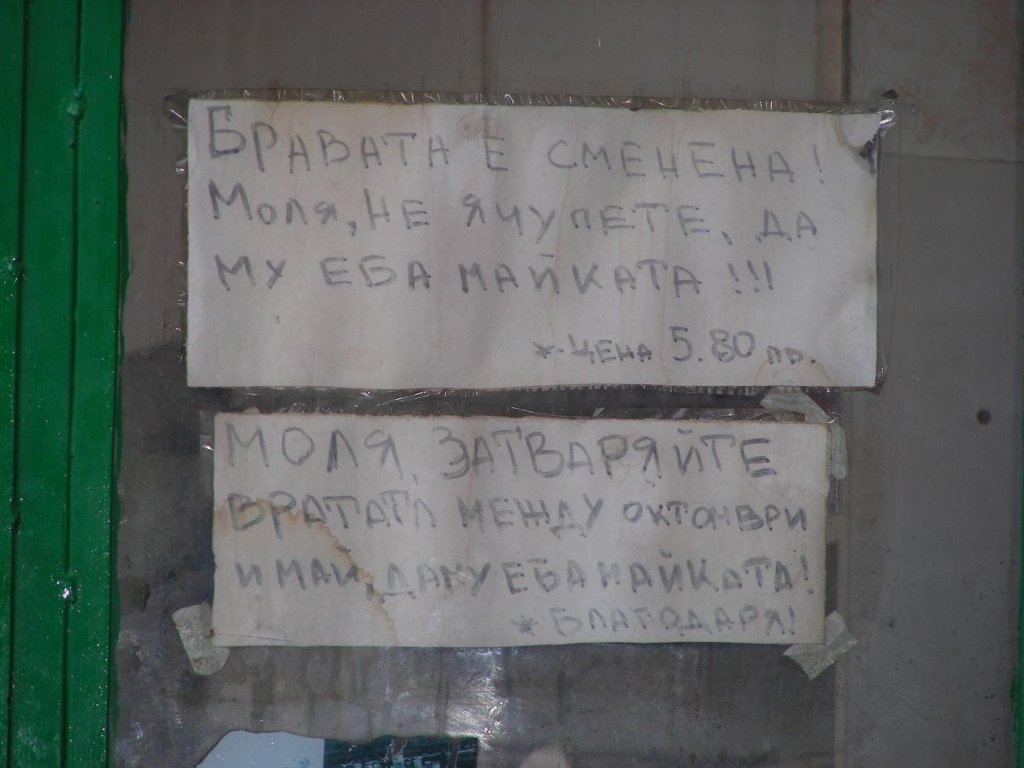 БРАВАТА Е СМЕНЕНА!
МОЛЯ, НЕ Я ЧУПЕТЕ, ДА
МУ ЕБА МАЙКАТА!!!
*.ЦЕНА 5.80 лв.
МОЛЯ, ЗАТВАРЯЙТЕ
ВРАТАТА МЕЖДУ ОКТОМВРИ
И МАЙ, ДА МУ ЕБА МАЙКАТА!
* БЛАГОДАРЯ!